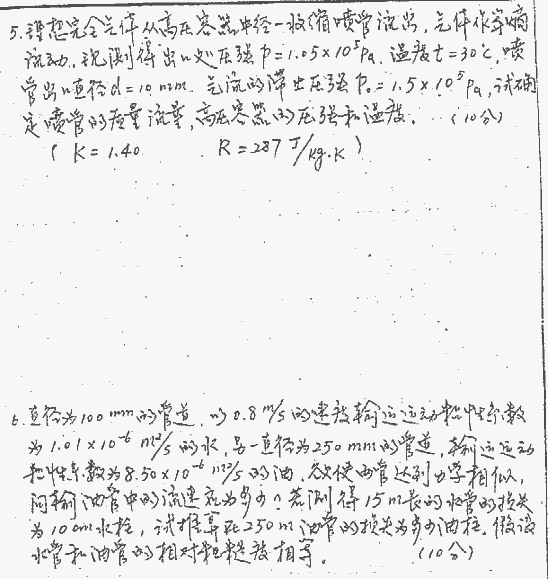 5. 理想完全气体从高压容器中经一收缩喷管流出，气体作等熵
流动，现测得出口处压强 P=1.05×10⁵Pa，温度 t=30℃，喷
管出口直径 d=10 mm. 气流的滞止压强 P₀=1.5×10⁵Pa，试确
定喷管的质量流量，高压容器的压强和温度. (10分)
( K=1.40 R=287 J/kg·K )
6. 直径为100 mm的管道，以0.8 m/s的速度输运运动粘性系数
为1.01×10⁻⁶ m²/s的水，另一直径为250 mm的管道，输运运动
粘性系数为8.50×10⁻⁶ m²/s的油，欲使两管达到力学相似，
问输油管中的流速应为多少？若测得15m长的水管的损失
为10cm水柱，试推算在250m油管的损失为多少油柱. 假设
水管和油管的相对粗糙度相等。 (10分)